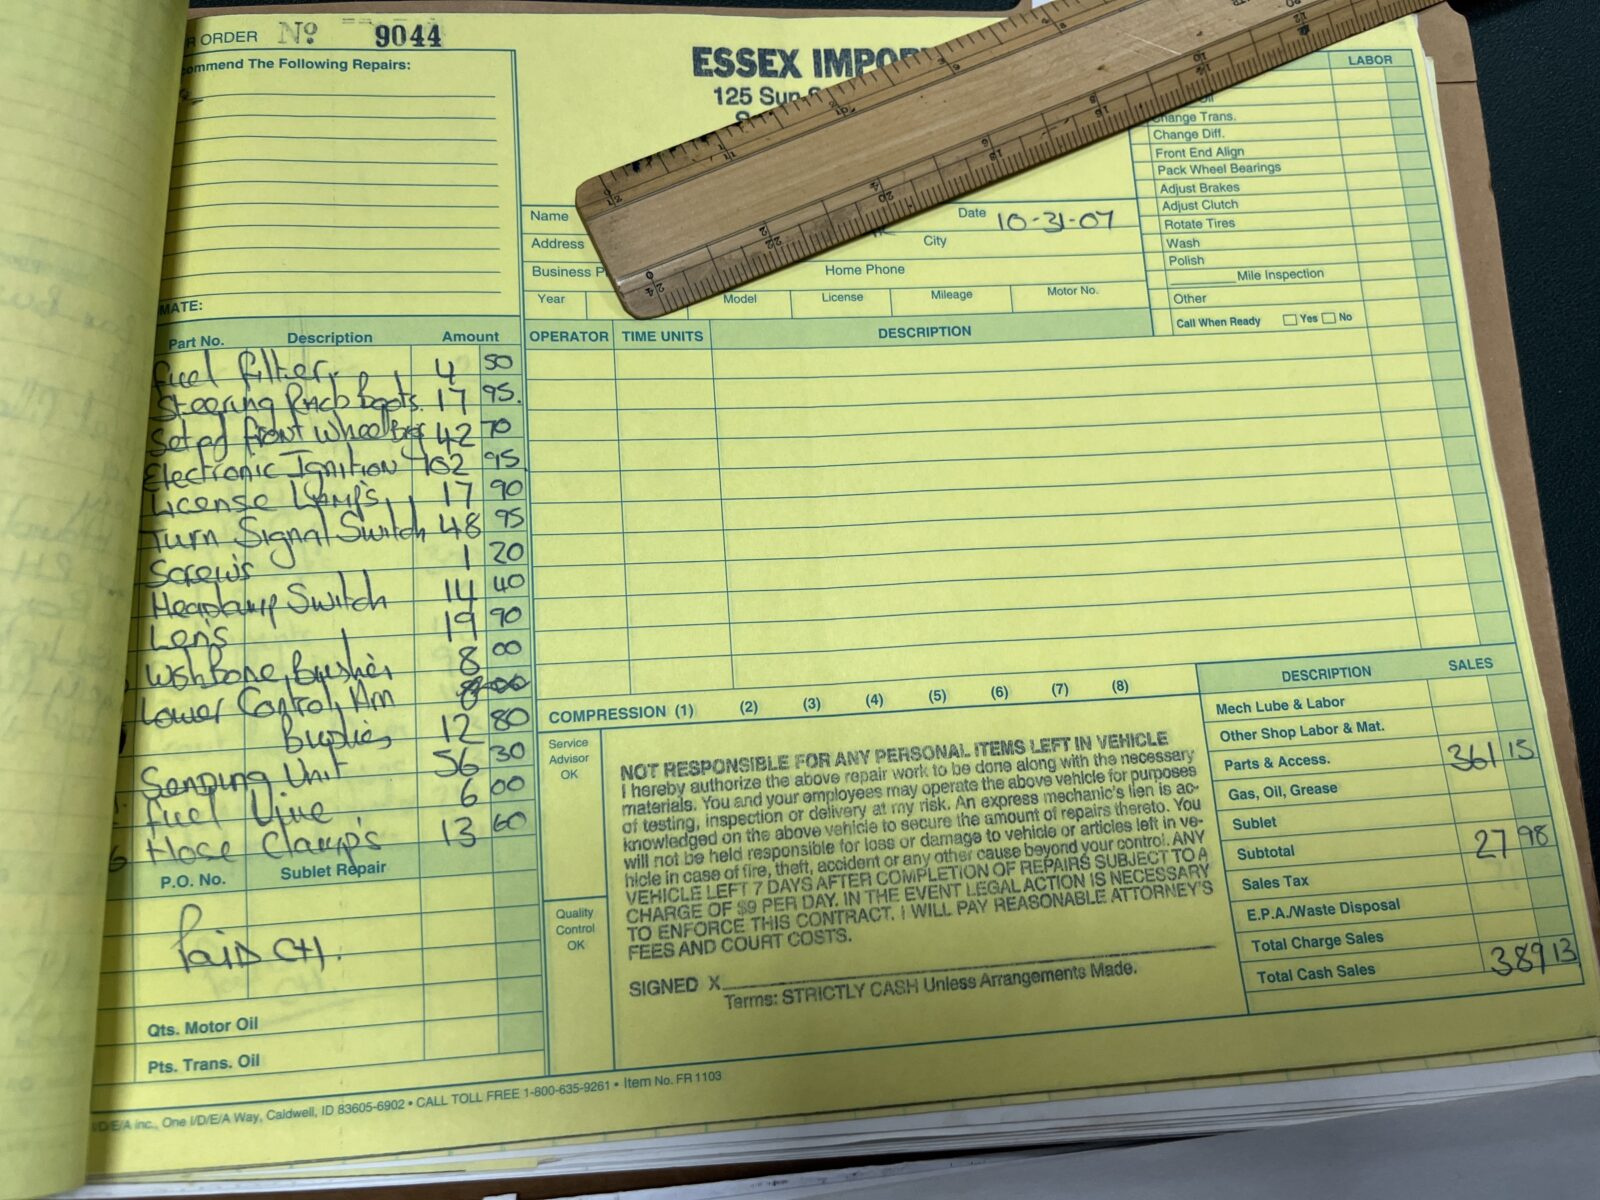 R ORDER Nº 9044
ommend The Following Repairs:
MATE:
Part No. Description Amount
Fuel filter. 4 50
Steering Rack boots. 17 95.
Set of front wheel brgs 42 70
Electronic Ignition 102 95
License Lamp's, 17 90
Turn Signal Switch 48 95
Screws 1 20
Headlamp Switch 14 40
Len's 19 90
Wishbone Bushes 8 00
Lower Control Arm 8 00
Bushes 12 80
Sending Unit 56 30
Fuel Line 6 00
Hose Clamp's 13 60
P.O. No. Sublet Repair
Paid CH.
Qts. Motor Oil
Pts. Trans. Oil
I/D/E/A inc., One I/D/E/A Way, Caldwell, ID 83605-6902 • CALL TOLL FREE 1-800-635-9261 • Item No. FR 1103
ESSEX IMPOR
125 Sun
Name Date 10-31-07
Address City
Business P Home Phone
Year Model License Mileage Motor No.
OPERATOR TIME UNITS DESCRIPTION
COMPRESSION (1) (2) (3) (4) (5) (6) (7) (8)
Service
Advisor
OK
Quality
Control
OK
NOT RESPONSIBLE FOR ANY PERSONAL ITEMS LEFT IN VEHICLE
I hereby authorize the above repair work to be done along with the necessary
materials. You and your employees may operate the above vehicle for purposes
of testing, inspection or delivery at my risk. An express mechanic's lien is ac-
knowledged on the above vehicle to secure the amount of repairs thereto. You
will not be held responsible for loss or damage to vehicle or articles left in ve-
hicle in case of fire, theft, accident or any other cause beyond your control. ANY
VEHICLE LEFT 7 DAYS AFTER COMPLETION OF REPAIRS SUBJECT TO A
CHARGE OF $9 PER DAY. IN THE EVENT LEGAL ACTION IS NECESSARY
TO ENFORCE THIS CONTRACT. I WILL PAY REASONABLE ATTORNEY'S
FEES AND COURT COSTS.
SIGNED X
Terms: STRICTLY CASH Unless Arrangements Made.
LABOR
Change Trans.
Change Diff.
Front End Align
Pack Wheel Bearings
Adjust Brakes
Adjust Clutch
Rotate Tires
Wash
Polish
Mile Inspection
Other
Call When Ready Yes No
DESCRIPTION SALES
Mech Lube & Labor
Other Shop Labor & Mat.
Parts & Access. 361 15
Gas, Oil, Grease
Sublet
Subtotal 27 98
Sales Tax
E.P.A./Waste Disposal
Total Charge Sales
Total Cash Sales 389 13